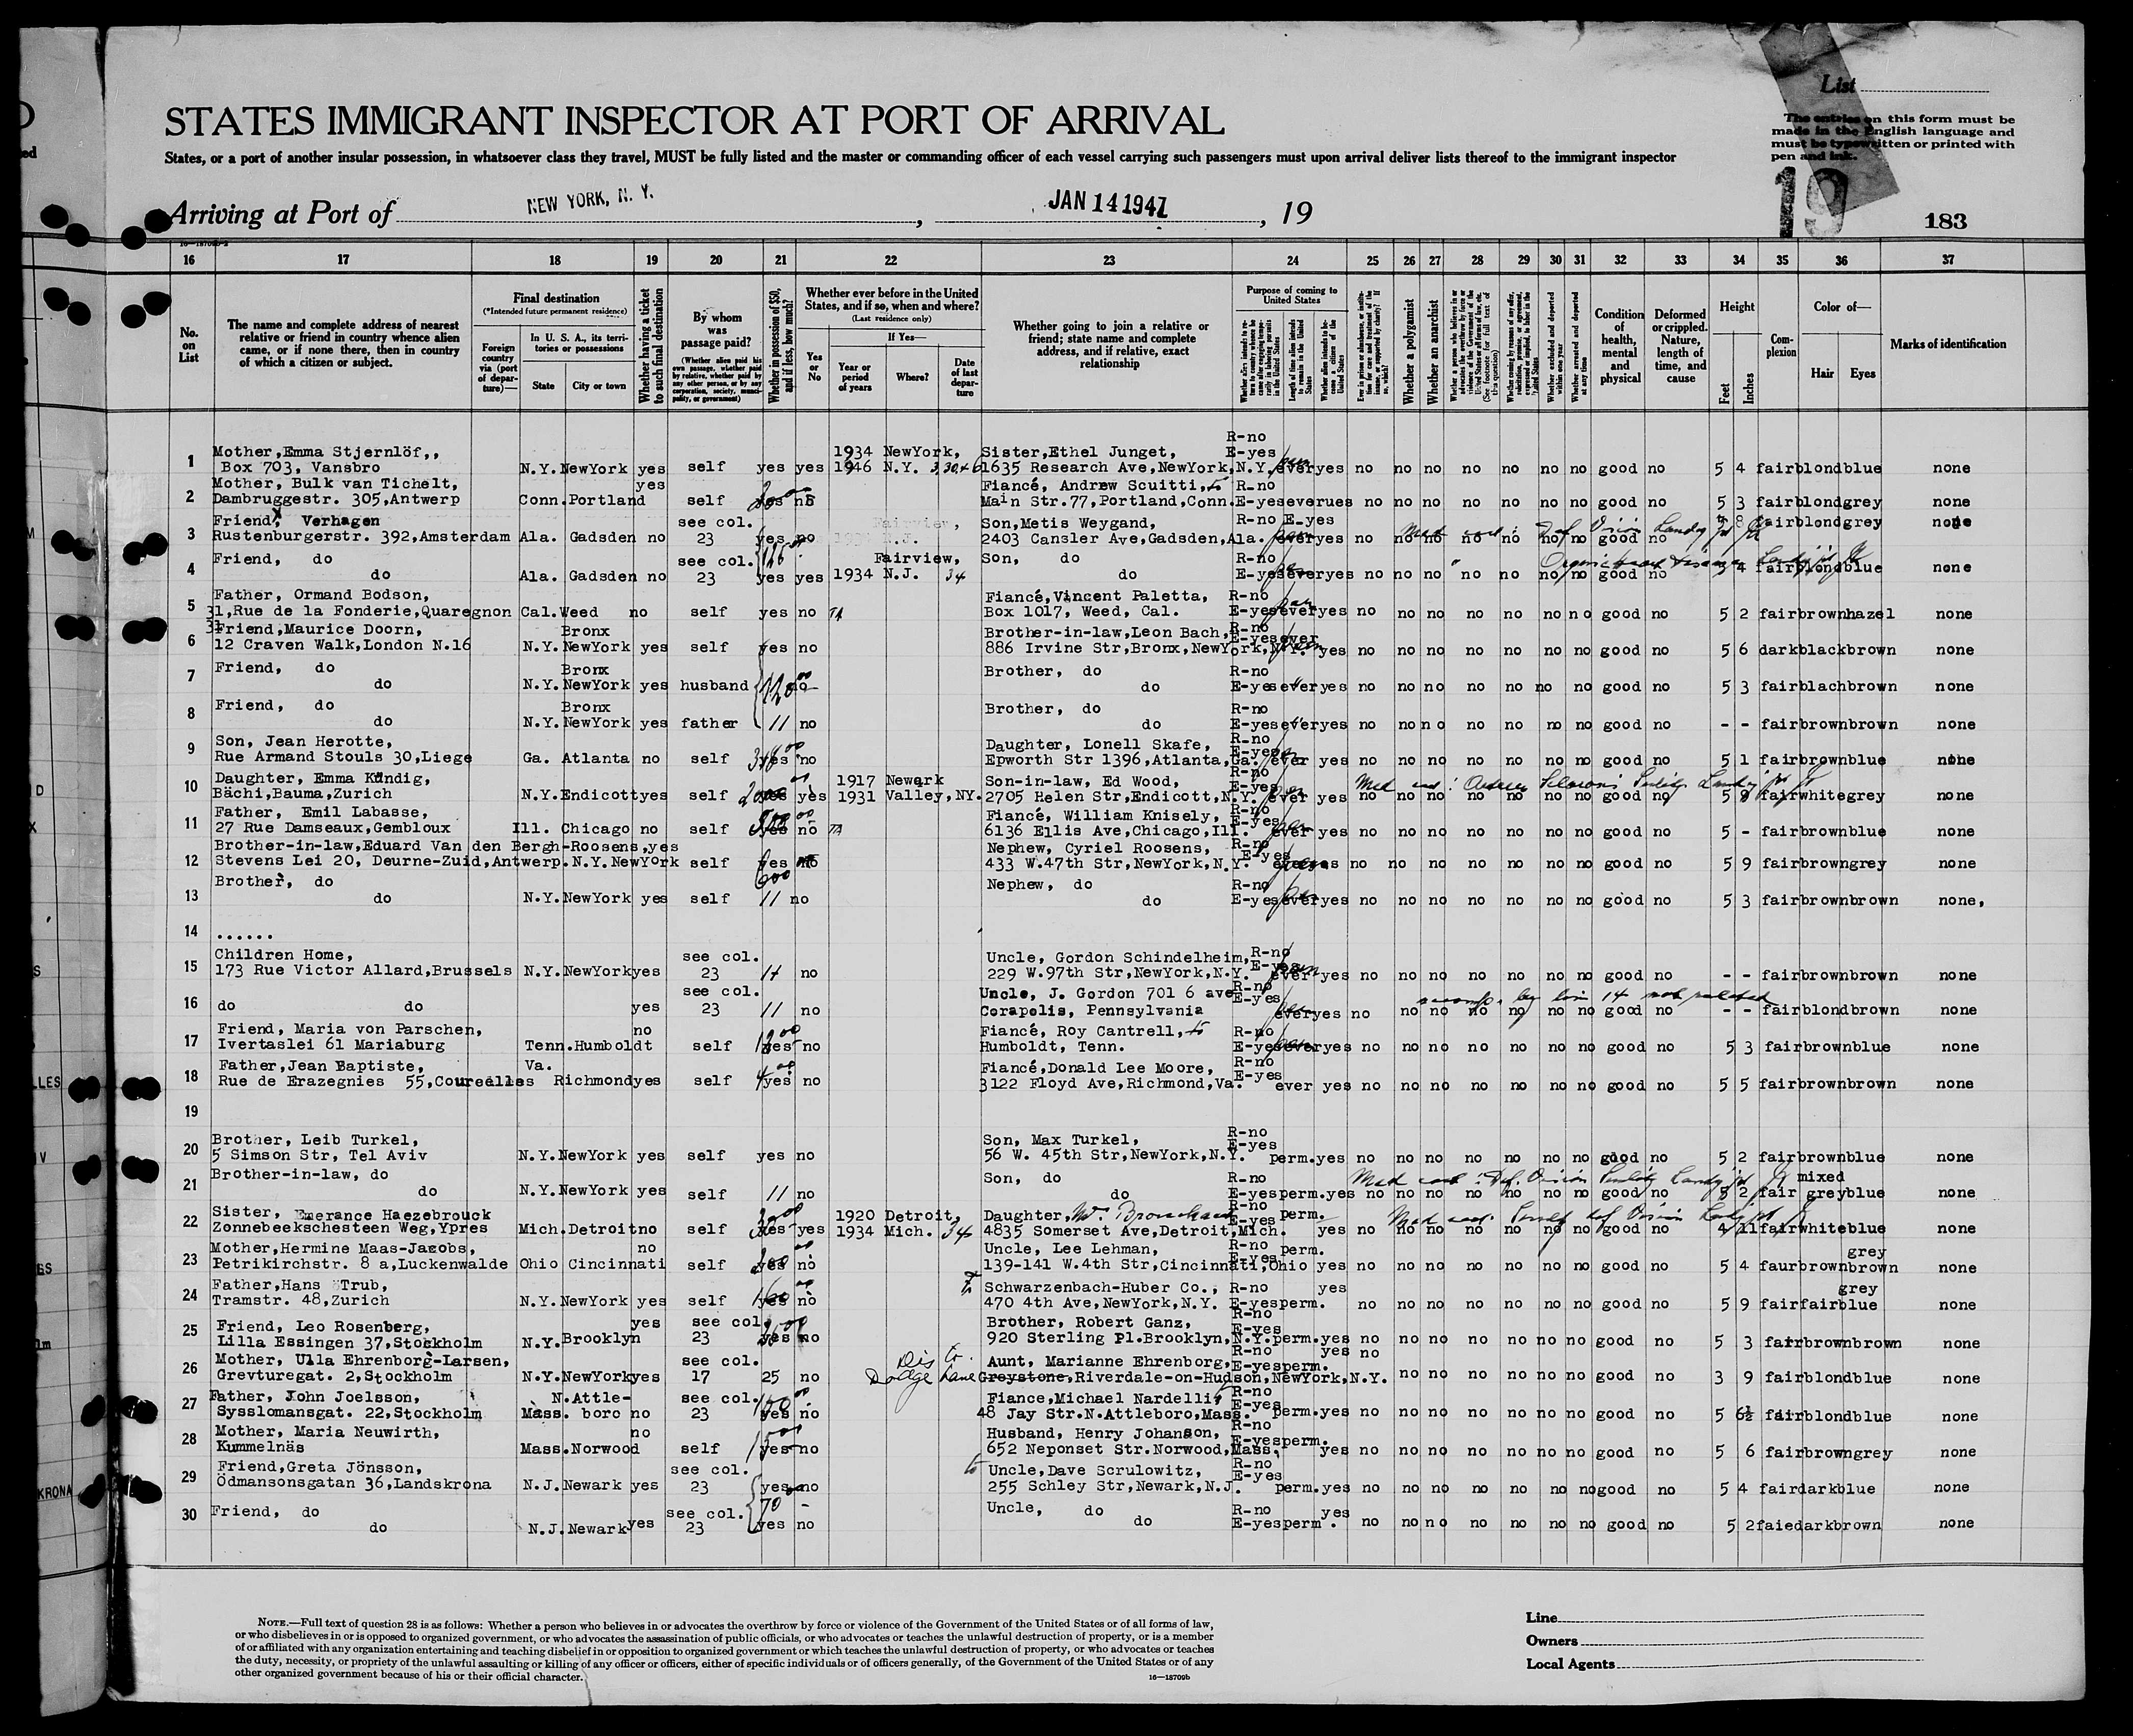 List
The entries on this form must be
made in the English language and
must be typewritten or printed with
pen and ink.
STATES IMMIGRANT INSPECTOR AT PORT OF ARRIVAL
States, or a port of another insular possession, in whatsoever class they travel, MUST be fully listed and the master or commanding officer of each vessel carrying such passengers must upon arrival deliver lists thereof to the immigrant inspector
Arriving at Port of NEW YORK, N. Y. , JAN 14 1947 , 19
19 183
16 17 18 19 20 21 22 23 24 25 26 27 28 29 30 31 32 33 34 35 36 37
No. on List
The name and complete address of nearest relative or friend in country whence alien came, or if none there, then in country of which a citizen or subject.
Final destination
(*Intended future permanent residence)
Foreign country via (port of departure)—
In U. S. A., its territories or possessions
State City or town
Whether having a ticket to such final destination
By whom was passage paid?
(Whether alien paid his own passage, whether paid by relative, whether paid by any other person, or by any corporation, society, municipality, or government)
Whether in possession of $50, and if less, how much?
Whether ever before in the United States, and if so, when and where?
(Last residence only)
Yes or No
If Yes—
Year or period of years Where? Date of last departure
Whether going to join a relative or friend; state name and complete address, and if relative, exact relationship
Purpose of coming to United States
Length of time alien intends to remain in the United States
Whether alien intends to become a citizen of the United States
Whether a polygamist
Whether an anarchist
Whether excluded and deported within one year
Whether arrested and deported at any time
Condition of health, mental and physical
Deformed or crippled. Nature, length of time, and cause
Height
Feet Inches
Complexion
Color of—
Hair Eyes
Marks of identification
1 Mother,Emma Stjernlöf,, 1934 NewYork, Sister,Ethel Junget, R-no E-yes
Box 703, Vansbro N.Y.NewYork yes self yes yes 1946 N.Y. 1635 Research Ave,NewYork,N.Y. ever yes no no no no no no no good no 5 4 fair blond blue none
2 Mother, Bulk van Tichelt, yes Fiancé, Andrew Scuitti, R-no
Dambruggestr. 305,Antwerp Conn.Portland self no Main Str.77,Portland,Conn. E-yes ever ues no no no no no no no good no 5 3 fair blond grey none
3 Friend, Verhagen see col. Son,Metis Weygand, R-no E-yes
Rustenburgerstr. 392,Amsterdam Ala. Gadsden no 23 yes no 2403 Cansler Ave,Gadsden,Ala. ever yes no no no no no no no good no 8 fair blond grey none
4 Friend, do see col. Fairview, Son, do R-no
do Ala. Gadsden no 23 yes yes 1934 N.J. 34 do E-yes ever yes no no no no no no no good no 4 fair blond blue none
5 Father, Ormand Bodson, Fiancé,Vincent Paletta, R-no
31,Rue de la Fonderie,Quaregnon Cal.Weed no self yes no Box 1017, Weed, Cal. E-yes ever yes no no no no no no no good no 5 2 fair brown hazel none
6 Friend,Maurice Doorn, Bronx Brother-in-law,Leon Bach, R-no E-yes ever
12 Craven Walk,London N.16 N.Y.NewYork yes self yes no 886 Irvine Str,Bronx,NewYork,N.Y. yes no no no no no no no good no 5 6 dark black brown none
7 Friend, do Bronx Brother, do R-no
do N.Y.NewYork yes husband no do E-yes ever yes no no no no no no no good no 5 3 fair blach brown none
8 Friend, do Bronx Brother, do R-no
do N.Y.NewYork yes father 11 no do E-yes ever yes no no no no no no no good no - - fair brown brown none
9 Son, Jean Herotte, Daughter, Lonell Skafe, R-no E-yes
Rue Armand Stouls 30,Liege Ga. Atlanta no self yes no Epworth Str 1396,Atlanta,Ga. ever yes no no no no no no no good no 5 1 fair brown blue none
10 Daughter, Emma Kündig, 1917 Newark Son-in-law, Ed Wood, R-no E-yes
Bächi,Bauma,Zurich N.Y.Endicott yes self yes 1931 Valley,NY. 2705 Helen Str,Endicott,N.Y. ever yes no no no no no no no good no 5 fair white grey none
11 Father, Emil Labasse, Fiancé, William Knisely, R-no E-yes
27 Rue Damseaux,Gembloux Ill. Chicago no self yes no 6136 Ellis Ave,Chicago,Ill. ever yes no no no no no no no good no 5 - fair brown blue none
12 Brother-in-law,Eduard Van den Bergh-Roosens,yes Nephew, Cyriel Roosens, R-no E-yes
Stevens Lei 20, Deurne-Zuid,Antwerp.N.Y.NewYork self yes no 433 W.47th Str,NewYork,N.Y. no no no no no no no good no 5 9 fair brown grey none
13 Brother, do 600 Nephew, do R-no
do N.Y.NewYork yes self 11 no do E-yes ever yes no no no no no no no good no 5 3 fair brown brown none,
14 ......
15 Children Home, see col. Uncle, Gordon Schindelheim, R-no E-yes
173 Rue Victor Allard,Brussels N.Y.NewYork yes 23 no 229 W.97th Str,NewYork,N.Y. ever yes no no no no no no no good no - - fair brown brown none
16 see col. Uncle, J. Gordon 701 6 ave R-no E-yes
do do yes 23 11 no Corapolis, Pennsylvania ever yes no no no no no no no good no - - fair blond brown none
17 Friend, Maria von Parschen, no Fiancé, Roy Cantrell, R-no
Ivertaslei 61 Mariaburg Tenn.Humboldt self yes no Humboldt, Tenn. E-yes ever yes no no no no no no no good no 5 3 fair brown blue none
18 Father,Jean Baptiste, Va. Fiancé,Donald Lee Moore, R-no E-yes
Rue de Erazegnies 55,Courcelles Richmond yes self yes no 3122 Floyd Ave,Richmond,Va. ever yes no no no no no no no good no 5 5 fair brown brown none
19
20 Brother, Leib Turkel, Son, Max Turkel, R-no E-yes
5 Simson Str, Tel Aviv N.Y.NewYork yes self yes no 56 W. 45th Str,NewYork,N.Y. perm.yes no no no no no no no good no 5 2 fair brown blue none
21 Brother-in-law, do Son, do R-no mixed
do N.Y.NewYork yes self 11 no do E-yes perm.yes no no no no no no no good no 5 2 fair grey blue none
22 Sister, Emerance Haezebrouck 1920 Detroit, Daughter, R-no E-yes perm.
Zonnebeekschesteen Weg,Ypres Mich.Detroit no self yes yes 1934 Mich. 34 4835 Somerset Ave,Detroit,Mich. yes no no no no no no no good no 4 11 fair white blue none
23 Mother,Hermine Maas-Jacobs, no Uncle, Lee Lehman, R-no E-yes perm. grey
Petrikirchstr. 8 a,Luckenwalde Ohio Cincinnati self yes no 139-141 W.4th Str,Cincinnati,Ohio yes no no no no no no no good no 5 4 faur brown brown none
24 Father,Hans Trub, Schwarzenbach-Huber Co., R-no yes grey
Tramstr. 48,Zurich N.Y.NewYork yes self yes no 470 4th Ave,NewYork,N.Y. E-yes perm. no no no no no no no good no 5 9 fair fair blue none
25 Friend, Leo Rosenberg, yes see col. Brother, Robert Ganz, R-no E-yes
Lilla Essingen 37,Stockholm N.Y. Brooklyn 23 yes no 920 Sterling Pl.Brooklyn,N.Y. perm.yes no no no no no no no good no 5 3 fair brown brown none
26 Mother, Ulla Ehrenborg-Larsen, see col. Aunt, Marianne Ehrenborg, R-no yes no E-yes perm.
Grevturegat. 2,Stockholm N.Y.NewYork yes 17 25 no Dodge Lane Greystone,Riverdale-on-Hudson,NewYork,N.Y. no no no no no no good no 3 9 fair blond blue none
27 Father, John Joelsson, N.Attle- see col. Fiance,Michael Nardelli, R-no E-yes
Sysslomansgat. 22,Stockholm Mass. boro no 23 yes no 48 Jay Str.N.Attleboro,Mass. perm.yes no no no no no no no good no 5 6½ fair blond blue none
28 Mother, Maria Neuwirth, no Husband, Henry Johanson, R-no E-yes perm.
Kummelnäs Mass.Norwood self yes no 652 Neponset Str.Norwood,Mass. yes no no no no no no no good no 5 6 fair brown grey none
29 Friend,Greta Jönsson, see col. Uncle,Dave Scrulowitz, R-no E-yes
Ödmansonsgatan 36,Landskrona N.J.Newark yes 23 yes no 255 Schley Str,Newark,N.J. perm.yes no no no no no no no good no 5 4 fair dark blue none
30 Friend, do see col. 70 Uncle, do R-no yes
do N.J.Newark yes 23 yes no do E-yes perm. no no no no no no no good no 5 2 faie dark brown none
NOTE.—Full text of question 28 is as follows: Whether a person who believes in or advocates the overthrow by force or violence of the Government of the United States or of all forms of law,
or who disbelieves in or is opposed to organized government, or who advocates the assassination of public officials, or who advocates or teaches the unlawful destruction of property, or is a member
of or affiliated with any organization entertaining and teaching disbelief in or opposition to organized government or which teaches the unlawful destruction of property, or who advocates or teaches
the duty, necessity, or propriety of the unlawful assaulting or killing of any officer or officers, either of specific individuals or of officers generally, of the Government of the United States or of any
other organized government because of his or their official character.
16—18709b
Line
Owners
Local Agents